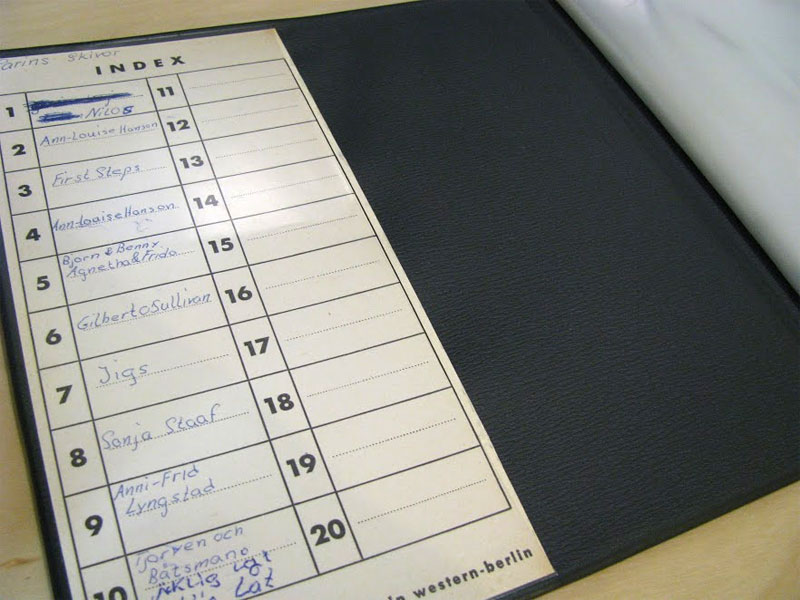 skivor
INDEX
1 Nilos
2 Ann-Louise Hanson
3 First Steps
4 Ann-Louise Hanson
5 Björn & Benny,
Agnetha & Frida
6 Gilbert O Sullivan
7 Jigs
8 Sonja Staaf
9 Anni-Frid
Lyngstad
10 Tjorven och
Båtsmano
11
12
13
14
15
16
17
18
19
20
in western-berlin